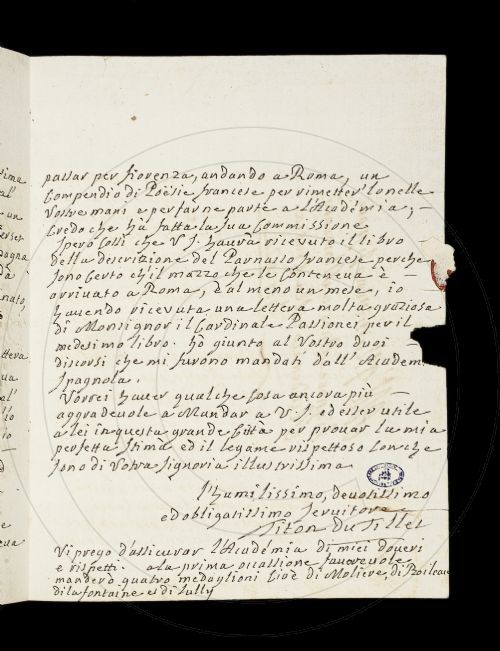 passar per fiorenza, andando a Roma, un
Compendio di Poësie francese per rimetter'lo nelle
Vostre mani e per farne parte a l'Acadêmia, —
Credo che ha fatta la sua Commissione
Spero Così che V. S. haurà ricevuto il libro —
della descrizione del Parnasso francese perche
sono Certo ch'il mazzo che le Conteneua è —
arrivato a Roma, è al meno un mese, io
hauendo ricevuta una lettera molta graziosa
di Monsignor il Cardinale Passionei per il
medesimo libro. hò giunto al Vostro duoi —
discorsi che mi furono mandati dall' Academ.
Spagnola.
Vorrei hauer qualche Cosa ancora più —
aggradeuole a Mandar a V. S. ed esser utile
a lei in questa grande Città per prouar la mia
perfetta stima ed il legame rispettoso con che
sono di Vostra Signoria illustrissima
l'humilissimo, deuotissimo
ed obligatissimo Seruitore
Titon Du Tillet
Vi prego d'assicurar l'Acadêmia di miei doueri
e rispetti. a la prima occassione fauoreuole
manderò quatro medaglioni Cioè di Moliere, di Boileau
di la fontaine e di Lully